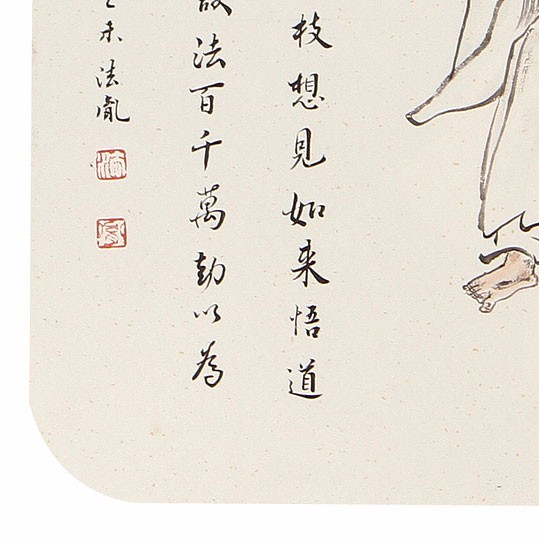 枝想見如来悟道
法百千萬劫以為
未法胤